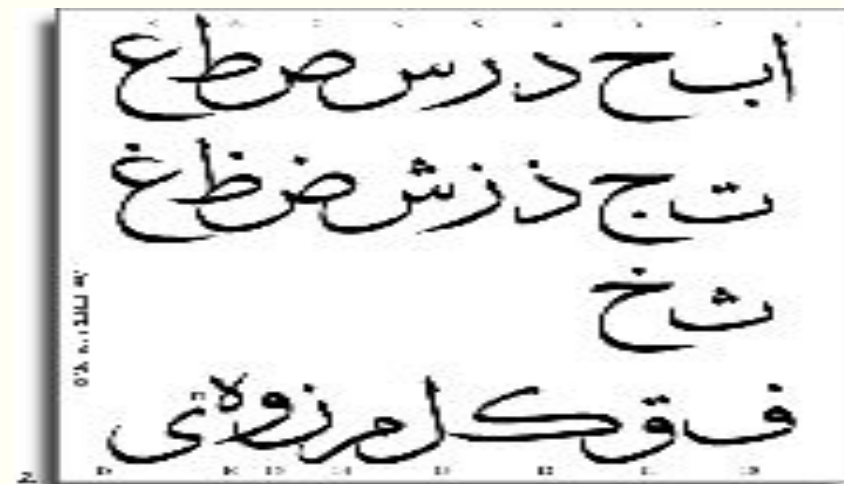 ا ب ح د ر س ص ط ع
ت ج ذ ز ش ض ظ غ
ث خ
ف ق ك ل م ن و لا ى
2.